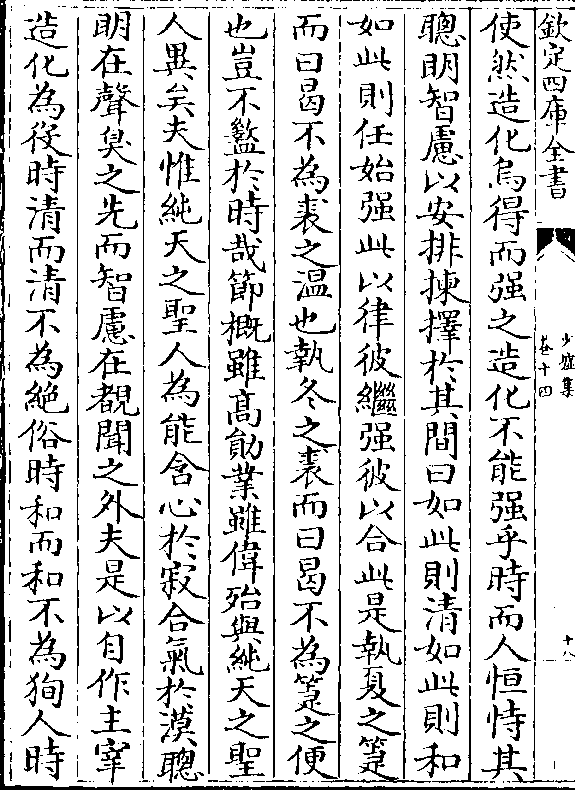 欽定四庫全書
少墟集
卷十四
十八
使然造化烏得而强之造化不能强乎時而人恒恃其
聰明智慮以安排揀擇於其間曰如此則清如此則和
如此則任始强此以律彼繼强彼以合此是執夏之箑
而曰曷不為裘之温也執冬之裘而曰曷不為箑之便
也豈不鑒於時哉節概雖髙勛業雖偉殆與純天之聖
人異矣夫惟純天之聖人為能含心於寂合氣於漠聰
明在聲臭之先而智慮在覩聞之外夫是以自作主宰
造化為役時清而清不為絶俗時和而和不為狥人時